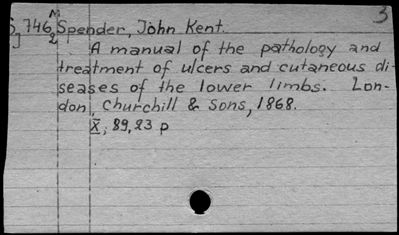 3
M
S, 746, Spender, John Kent.
J 2
A manual of the pathology and
treatment of ulcers and cutaneous di-
seases of the lower limbs. Lon-
don, Churchill & Sons, 1868.
X, 89, 23 p